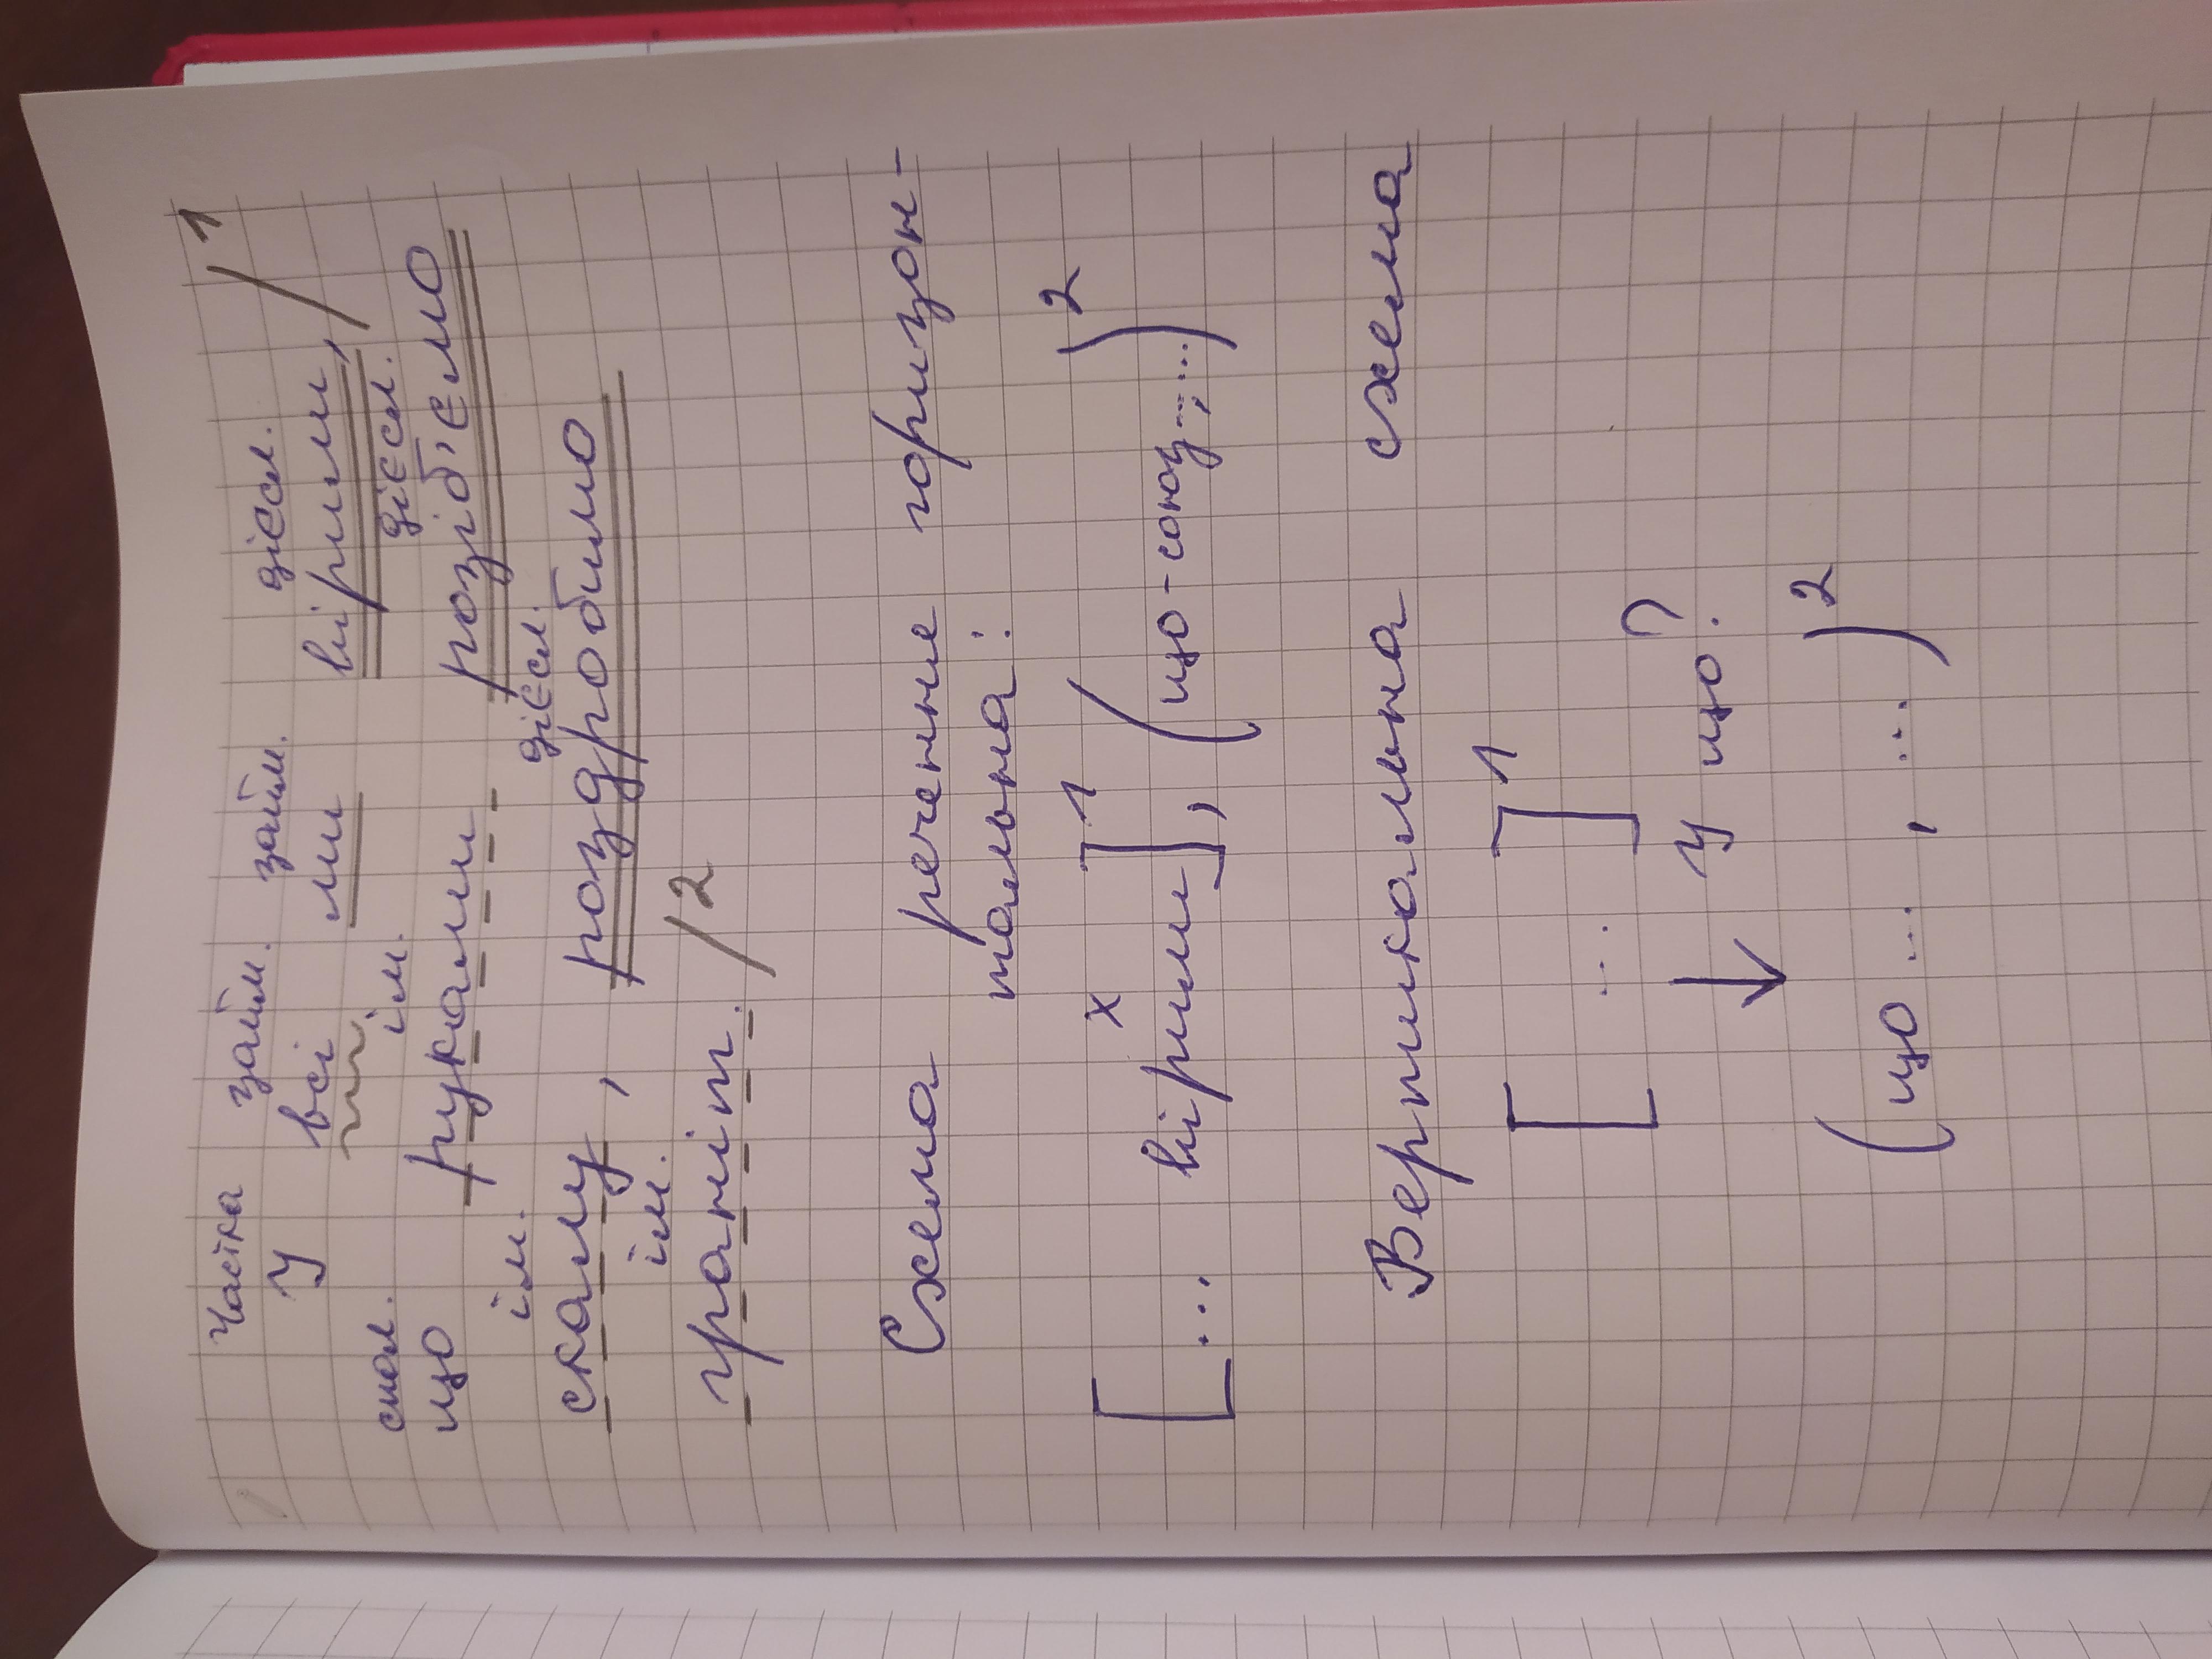 Частка займ. займ. дієсл.
У всі ми віримм, /1
спол. ім. дієсл.
що руками розіб'ємо
ім. дієсл.
скалу, роздробимо
ім.
граніт. /2
Схема речення горизон-
тальна:
х 1 2
[... вірим], (що-союз...,...)
Вертикальна схема
[ ... ]1
↓ у що?
(що ... , ...)2